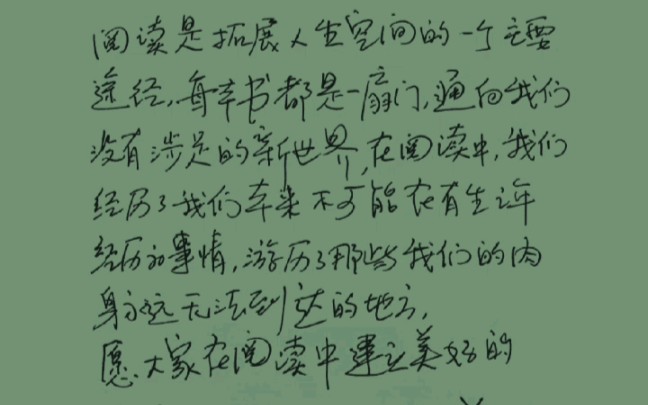 阅读是拓展人生空间的一个主要
途径,每本书都是一扇门,通向我们
没有涉足的新世界,在阅读中,我们
经历了我们本来不可能在有生之年
经历的事情,游历了那些我们的肉
身永远无法到达的地方,
愿大家在阅读中建立美好的